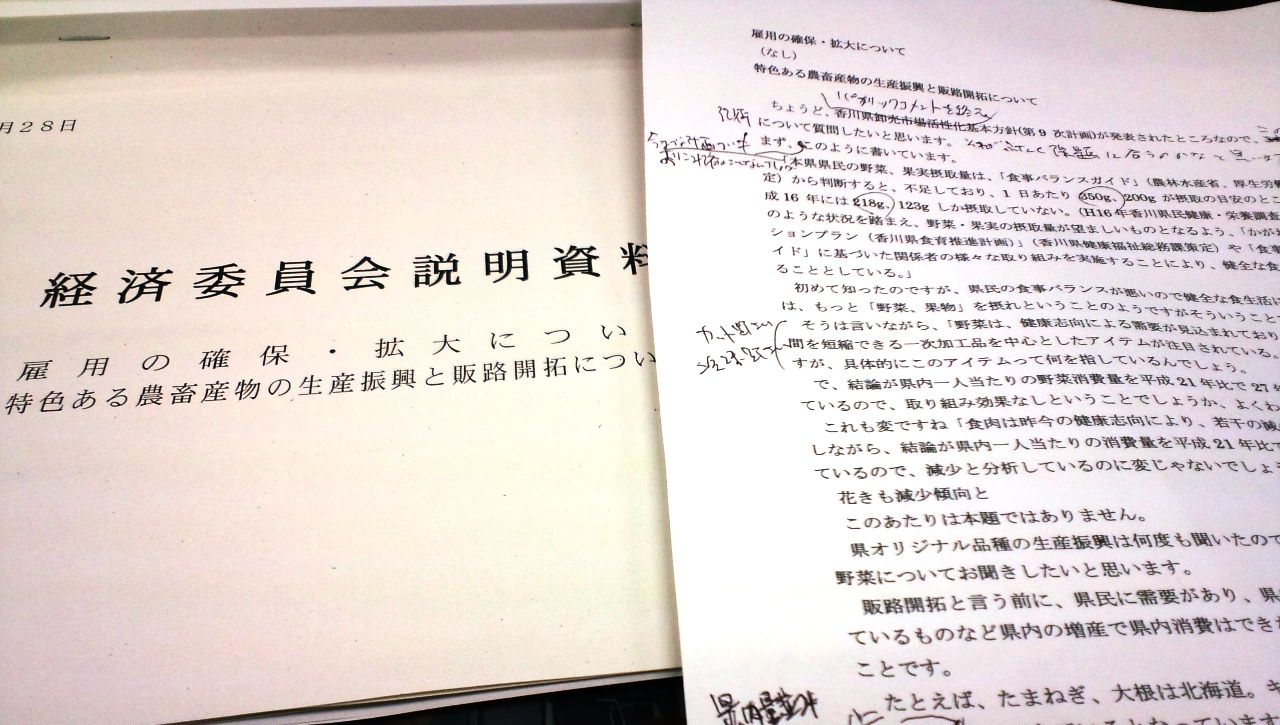 月28日
経済委員会説明資料
雇用の確保・拡大につい
特色ある農畜産物の生産振興と販路開拓につい
雇用の確保・拡大について
（なし）
特色ある農畜産物の生産振興と販路開拓について
パブリックコメントを終え
ちょうど、香川県卸売市場活性化基本方針(第9次計画)が発表されたところなので、
について質問したいと思います。
まず、このように書いています。
「本県県民の野菜、果実摂取量は、「食事バランスガイド」（農林水産省、厚生労働
定）から判断すると、不足しており、1日あたり350g、200gが摂取の目安のとこ
成16年には218g、123gしか摂取していない。（H16年香川県民健康・栄養調査
のような状況を踏まえ、野菜・果実の摂取量が望ましいものとなるよう、「かがわ
ションプラン（香川県食育推進計画）」（香川県健康福祉総務課策定）や「食事
イド」に基づいた関係者の様々な取り組みを実施することにより、健全な食
ることとしている。」
初めて知ったのですが、県民の食事バランスが悪いので健全な食生活に
は、もっと「野菜、果物」を摂れということのようですがそういうこと
そうは言いながら、「野菜は、健康志向による需要が見込まれており
カット野菜
間を短縮できる一次加工品を中心としたアイテムが注目されている。
すが、具体的にこのアイテムって何を指しているんでしょう。
で、結論が県内一人当たりの野菜消費量を平成21年比で27年
ているので、取り組み効果なしということでしょうか、よくわ
これも変ですね「食肉は昨今の健康志向により、若干の減
しながら、結論が県内一人当たりの消費量を平成21年比で
ているので、減少と分析しているのに変じゃないでしょ
花きも減少傾向と
このあたりは本題ではありません。
県オリジナル品種の生産振興は何度も聞いたので
野菜についてお聞きしたいと思います。
販路開拓と言う前に、県民に需要があり、県
ているものなど県内の増産で県内消費はでき
ことです。
たとえば、たまねぎ、大根は北海道。キ